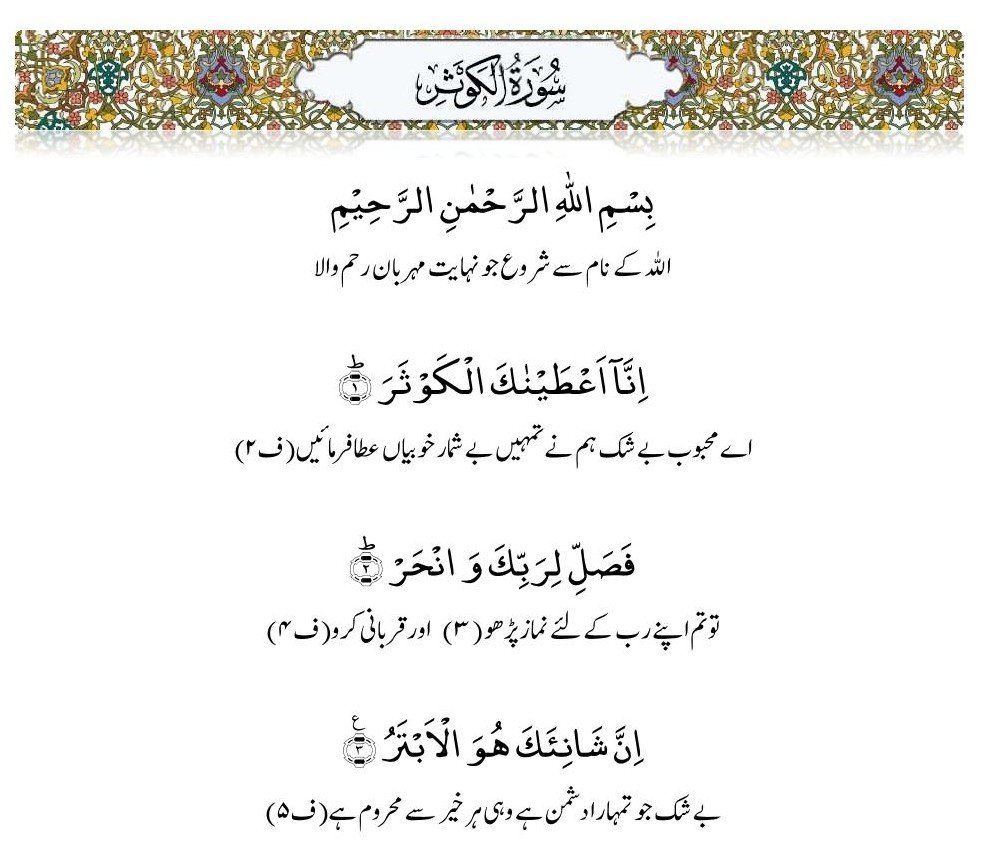 سُوْرَةُ الْكَوْثَرِ
بِسْمِ اللّٰهِ الرَّحْمٰنِ الرَّحِيْمِ
اللہ کے نام سے شروع جو نہایت مہربان رحم والا
اِنَّاۤ اَعْطَيْنٰكَ الْكَوْثَرَ ؕ﴿۱﴾
اے محبوب بے شک ہم نے تمہیں بے شمار خوبیاں عطا فرمائیں (ف۲)
فَصَلِّ لِرَبِّكَ وَ انْحَرْ ؕ﴿۲﴾
تو تم اپنے رب کے لئے نماز پڑھو (۳) اور قربانی کرو (ف۴)
اِنَّ شَانِئَكَ هُوَ الْاَبْتَرُ ﴿۳﴾ ع
بے شک جو تمہارا دشمن ہے وہی ہر خیر سے محروم ہے (ف۵)